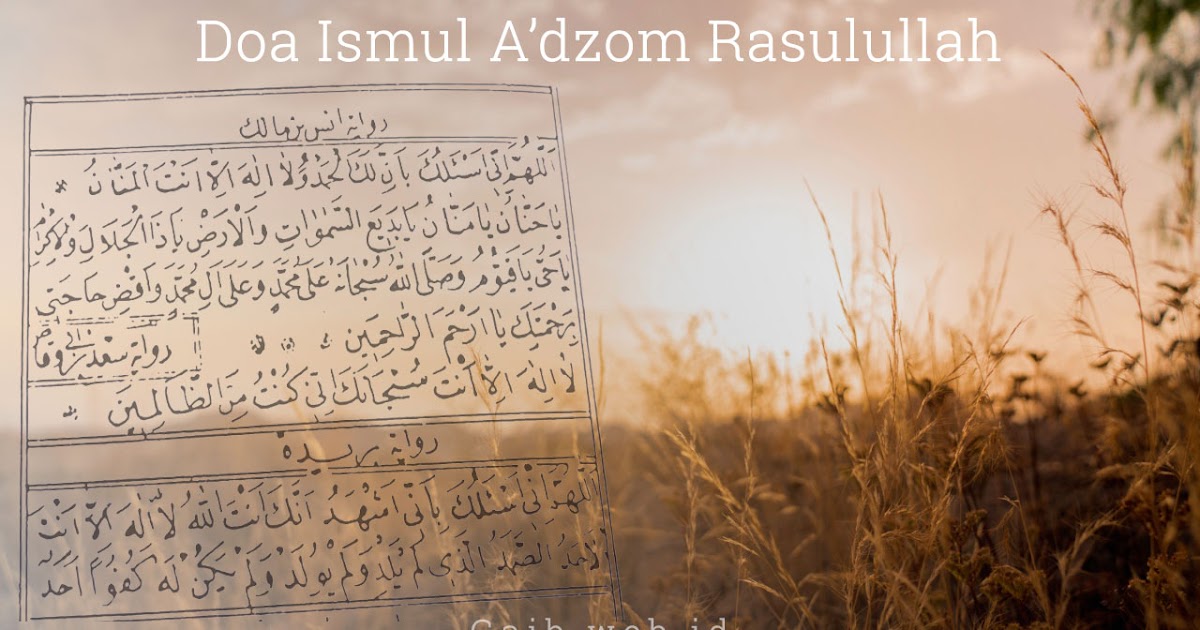 Doa Ismul A’dzom Rasulullah
رواية انس بن مالك
اَللّٰهُمَّ اِنِّى اَسْئَلُكَ بِاَنَّ لَكَ الْحَمْدُ وَلَا اِلٰهَ اِلَّا اَنْتَ الْمَنَّانُ
يَا حَنَّانُ يَا مَنَّانُ يَا بَدِيْعَ السَّمٰوَاتِ وَالْاَرْضِ يَا ذَا الْجَلَالِ وَالْاِكْرَامِ
يَا حَىُّ يَا قَيُّوْمُ وَصَلَّى اللّٰهُ سُبْحَانَهُ عَلَى مُحَمَّدٍ وَعَلَى اٰلِ مُحَمَّدٍ وَاقْضِ حَاجَتِى
بِرَحْمَتِكَ يَا اَرْحَمَ الرَّاحِمِيْنَ
رواية سعد بن ابى وقاص
لَا اِلٰهَ اِلَّا اَنْتَ سُبْحَانَكَ اِنِّى كُنْتُ مِنَ الظَّالِمِيْنَ
رواية بريدة
اَللّٰهُمَّ اِنِّى اَسْئَلُكَ بِاَنِّى اَشْهَدُ اَنَّكَ اَنْتَ اللّٰهُ لَا اِلٰهَ اِلَّا اَنْتَ
الْاَحَدُ الصَّمَدُ الَّذِى لَمْ يَلِدْ وَلَمْ يُوْلَدْ وَلَمْ يَكُنْ لَهُ كُفُوًا اَحَدٌ
Gaib.web.id